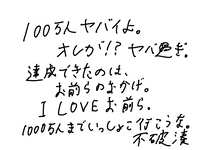 100万人ヤバイよ。
オレが!? ヤバ過ぎ。
達成できたのは、
お前らのおかげ。
I LOVEお前ら。
1000万人までいっしょに行こうな。
不破湊